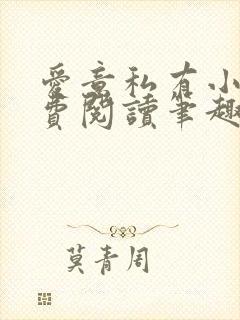 愛意私有小
費閱讀筆趣
莫青周